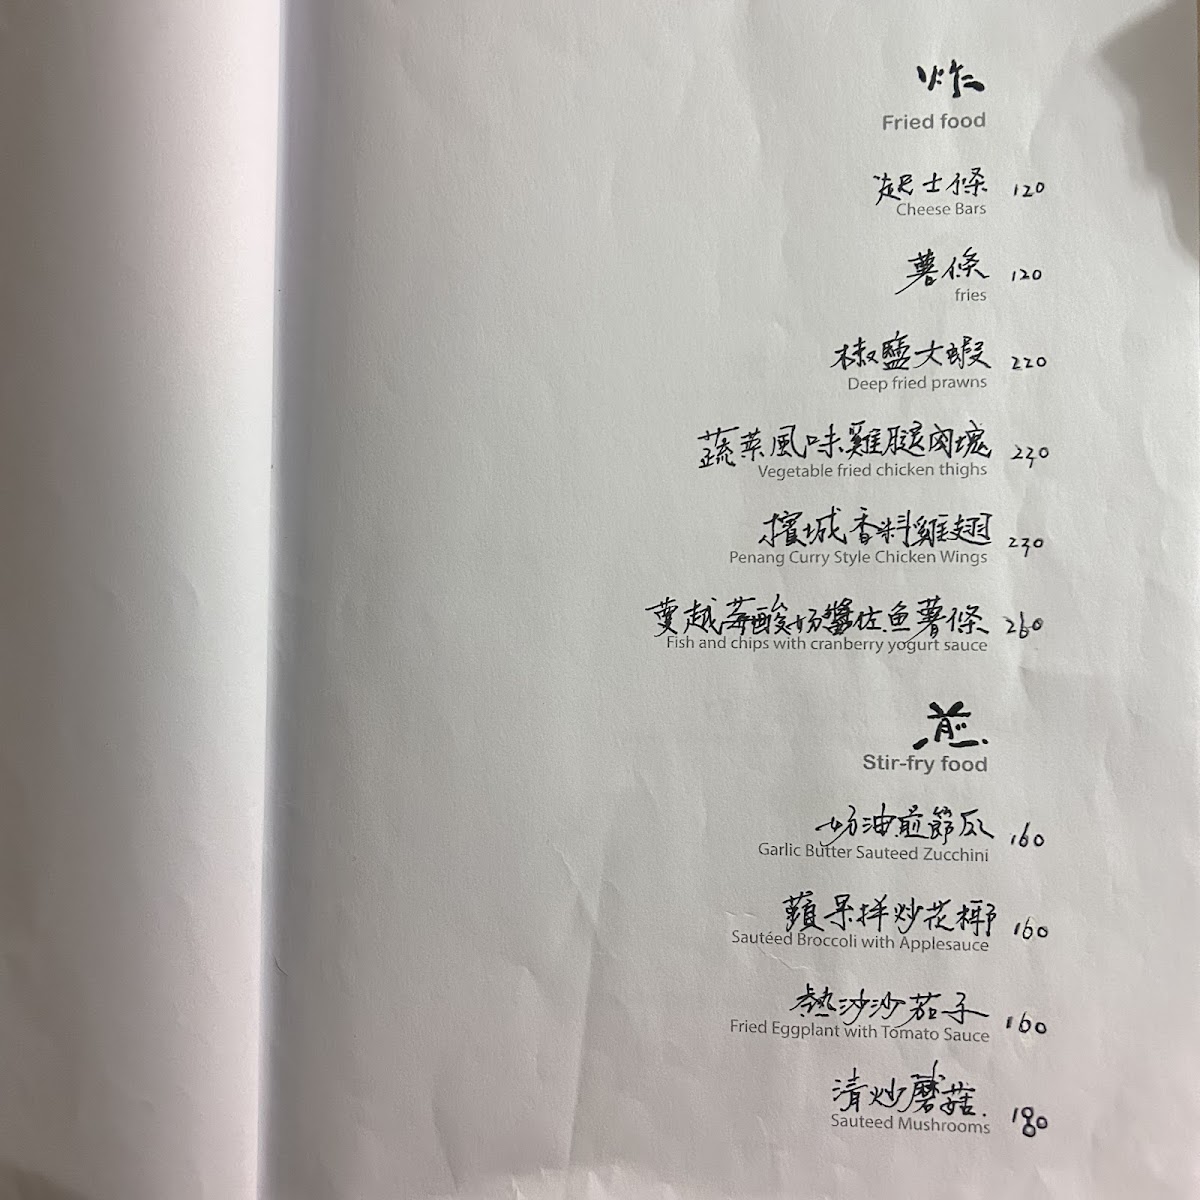 炸
Fried food
起士條 120
Cheese Bars
薯條 120
fries
椒鹽大蝦 220
Deep fried prawns
蔬菜風味雞腿肉塊 230
Vegetable fried chicken thighs
檳城香料雞翅 230
Penang Curry Style Chicken Wings
蔓越莓酸奶醬佐魚薯條 260
Fish and chips with cranberry yogurt sauce
煎
Stir-fry food
奶油煎節瓜 160
Garlic Butter Sauteed Zucchini
蘋果拌炒花椰 160
Sautéed Broccoli with Applesauce
熱沙沙茄子 160
Fried Eggplant with Tomato Sauce
清炒蘑菇 180
Sauteed Mushrooms